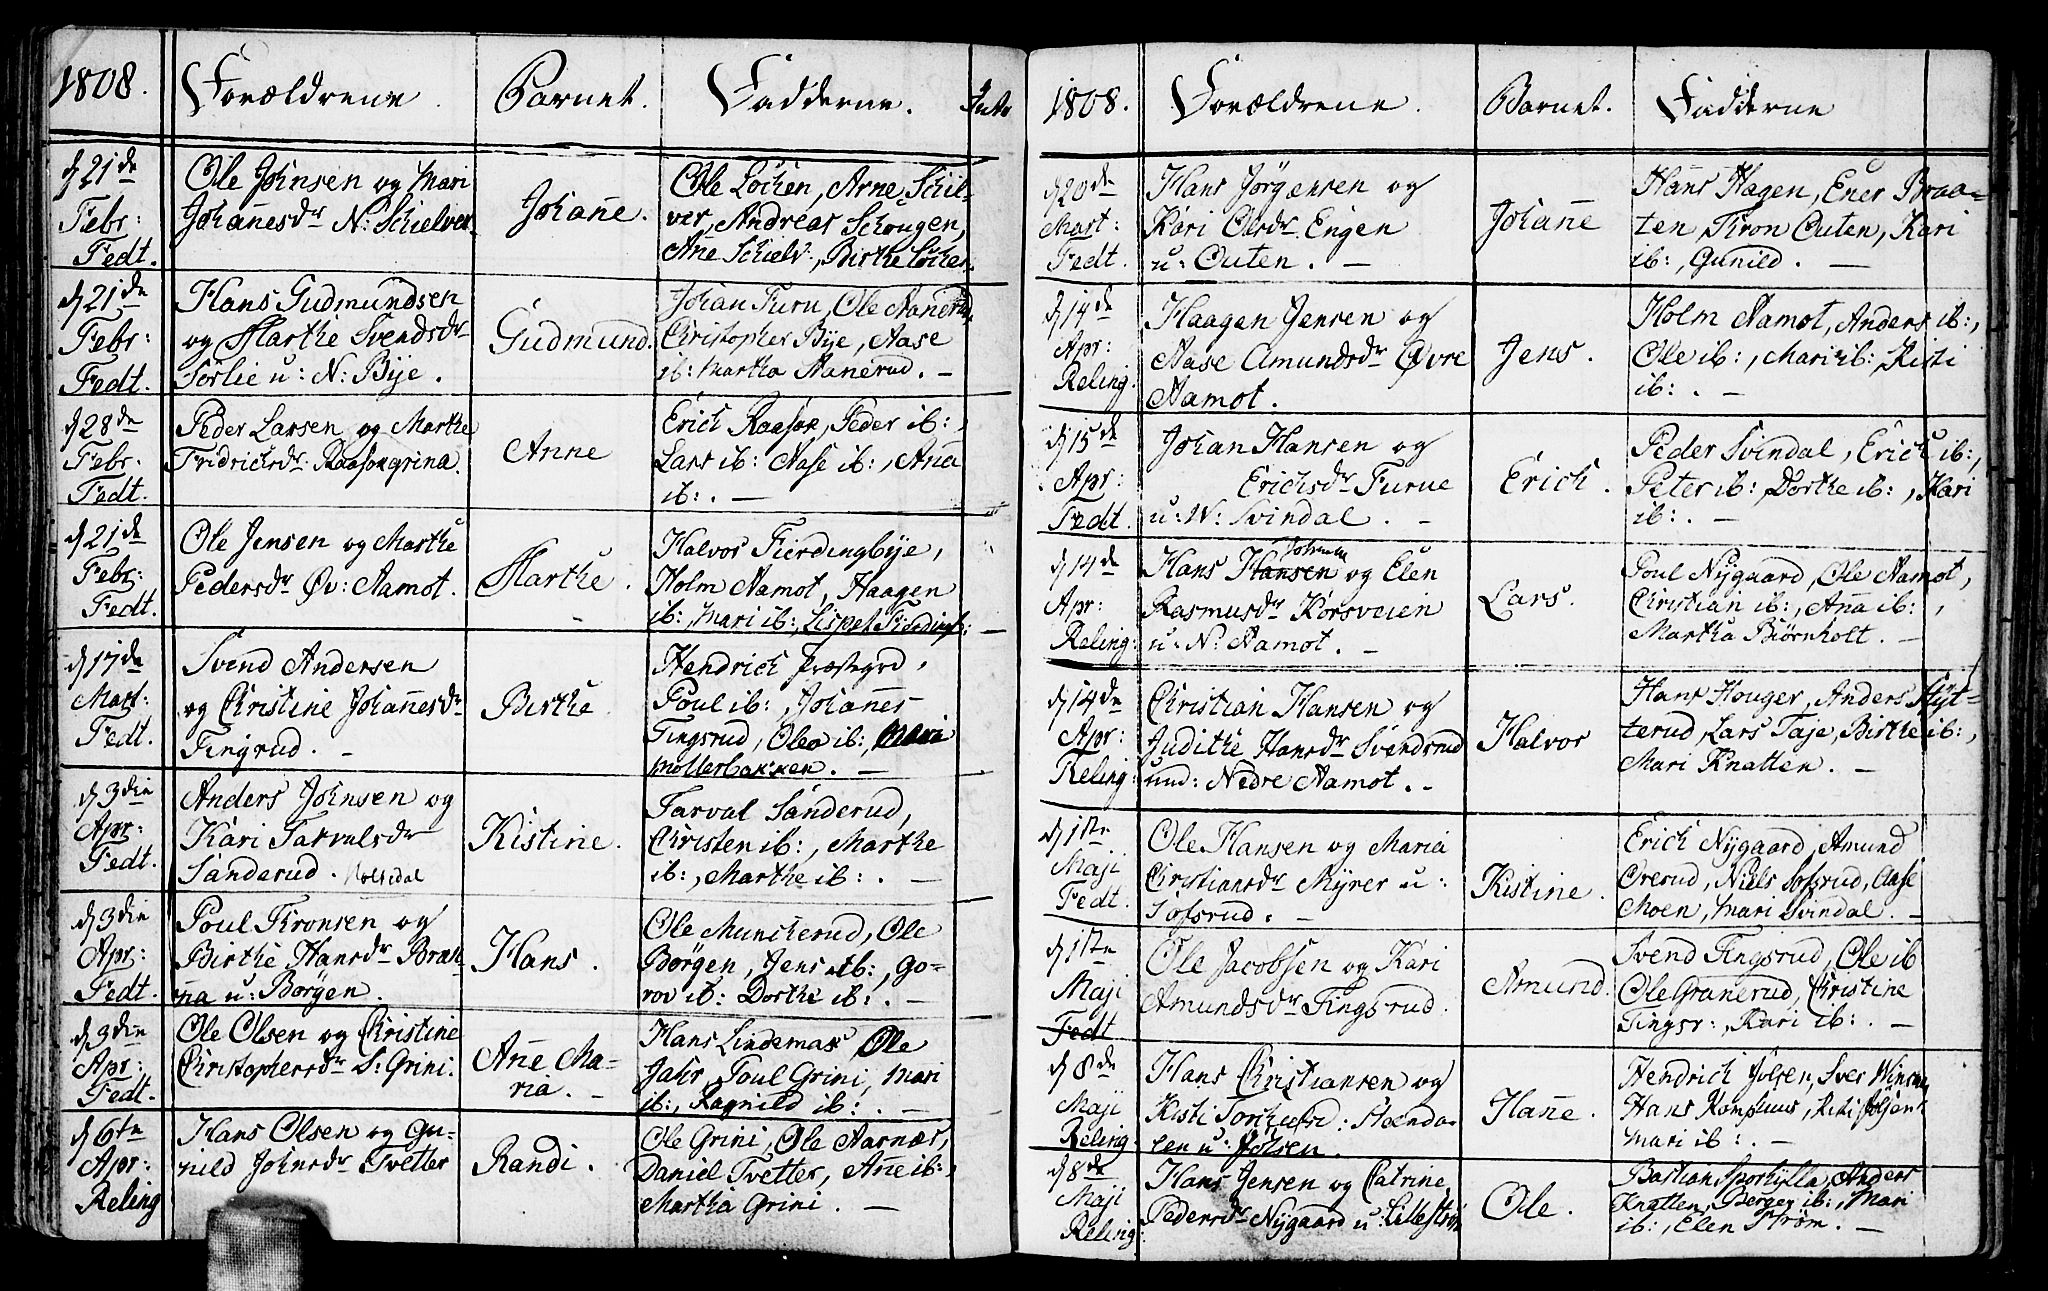 1808. Forældrene. Barnet. Fadderne.
d 21de Febr: Fedt.
Ole Johnsen og Mari
Johañesdr N: Schielver.
Johañe.
Ole Löchen, Arne Schiel-
ver, Andreas Schougen,
Añe Schielv:, Birthe Löchen.
d 21de Febr: Fedt.
Hans Gudmundsen
og Marthe Svendsdr
Sörlie u: N: Bÿe.
Gudmund.
Johan Furu, Ole Nanerud,
Christopher Bÿe, Aase
ib: Martha Nanerud. –
d 28de Febr: Fedt.
Peder Larsen og Marthe
Fridrichsdr Raasokgrina.
Anne
Erich Raasok, Peder ib:,
Lars ib: Aase ib:, Aña
ib:. –
d 21de Febr: Fedt.
Ole Jensen og Marthe
Pedersdr Öv: Aamot.
Marthe.
Halvor Fierdingbÿe,
Holm Aamot, Haagen
ib:, Mari ib:, Lispet Fierdingb: –
d 17de Mart: Fedt.
Svend Andersen
og Christine Johañesdr
Tingrud. –
Birthe.
Hendrich Præstegrd,
Poul ib:, Johañes
Tingsrud, Olea ib:, Mari
Möllerbakken. –
d 3die Apr: Fedt.
Anders Johnsen og
Kari Tarvalsdr
Sanderud.
Kistine.
Tarval Sanderud,
Christen ib:, Marthe
ib:, Marthe ib:. –
d 3die Apr: Fedt.
Poul Thronsen og
Birthe Hansdr Braa-
na u: Börgen.
Hans.
Ole Muncherud, Ole
Börgen, Jens ib:, Go-
rov ib: Dorthe ib:. –
d 3die Apr: Fedt.
Ole Olsen og Christine
Christophersdr S: Grini.
Añe Ma-
ria. –
Hans Lindemak Ole
Jahr, Poul Grini, Mari
ib:, Ragnild ib:. –
d 6te Apr: Reling
Hans Olsen og Gu-
nild Johnsdr Tvetter
Randi.
Ole Grini, Ole Aarnæs,
Daniel Tvetter, Añe ib:,
Martha Grini. –
1808. Forældrene. Barnet. Fadderne
d 20de Mart: Fedt.
Hans Jörgensen og
Kari Olsdr Engen
u: Outen. –
Johañe
Hans Hagen, Ener Braa-
ten, Thron Outen, Kari
ib:, Gunild. –
d 14de Apr: Reling:
Haagen Jensen og
Aase Amundsdr Övre
Aamot.
Jens.
Holm Aamot, Anders ib:,
Ole ib:, Mari ib:, Kisti
ib:. –
d 15de Apr: Fedt.
Johan Hansen og
Erichsdr Furue
u: N: Svindal. –
Erich.
Peder Svindal, Erich ib:,
Peter ib: Dorthe ib:, Kari
ib:. –
d 14de Apr: Reling:
Hans Hansen Johnsen og Elen
Rasmusdr Korsveien
u: N: Aamot. –
Lars.
Poul Nÿgaard, Ole Aamot,
Christian ib:, Aña ib:,
Martha Biörnholt. –
d 14de Apr: Reling:
Christian Hansen og
Judithe Hansdr Svendsrud
und: Nedre Aamot. –
Halvor
Hans Houger, Anders Hÿt-
terud, Lars Taje, Birthe ib:,
Mari Knatten. –
d 1ste Maji Fedt.
Ole Hansen og Maria
Christiansdr Mÿrer u:
Sofsrud. –
Kistine.
Erich Nÿgaard, Amund
Overud, Niels Sofsrud, Aase
Moen, Mari Svindal. –
d 1ste Maji Fedt
Ole Jacobsen og Kari
Amundsdr Tingsrud.
Amund.
Svend Tingsrud, Ole ib
Ole Granerud, Christine
Tingsr:, Kari ib:. –
d 8de Maji Reling:
Hans Christiansen og
Kisti
len u: Jölsen.
Hañe.
Hendrich Jolsen,
Hans
Mari ib:. –
d 8de Maji Reling:
Hans Jensen og Catrine
Pedersdr Nÿgaard u: Lilleström
Ole.
Bastian Sporhylla, Anders
Knatten, Berger ib:, Mari
ib:, Elen Ström. –